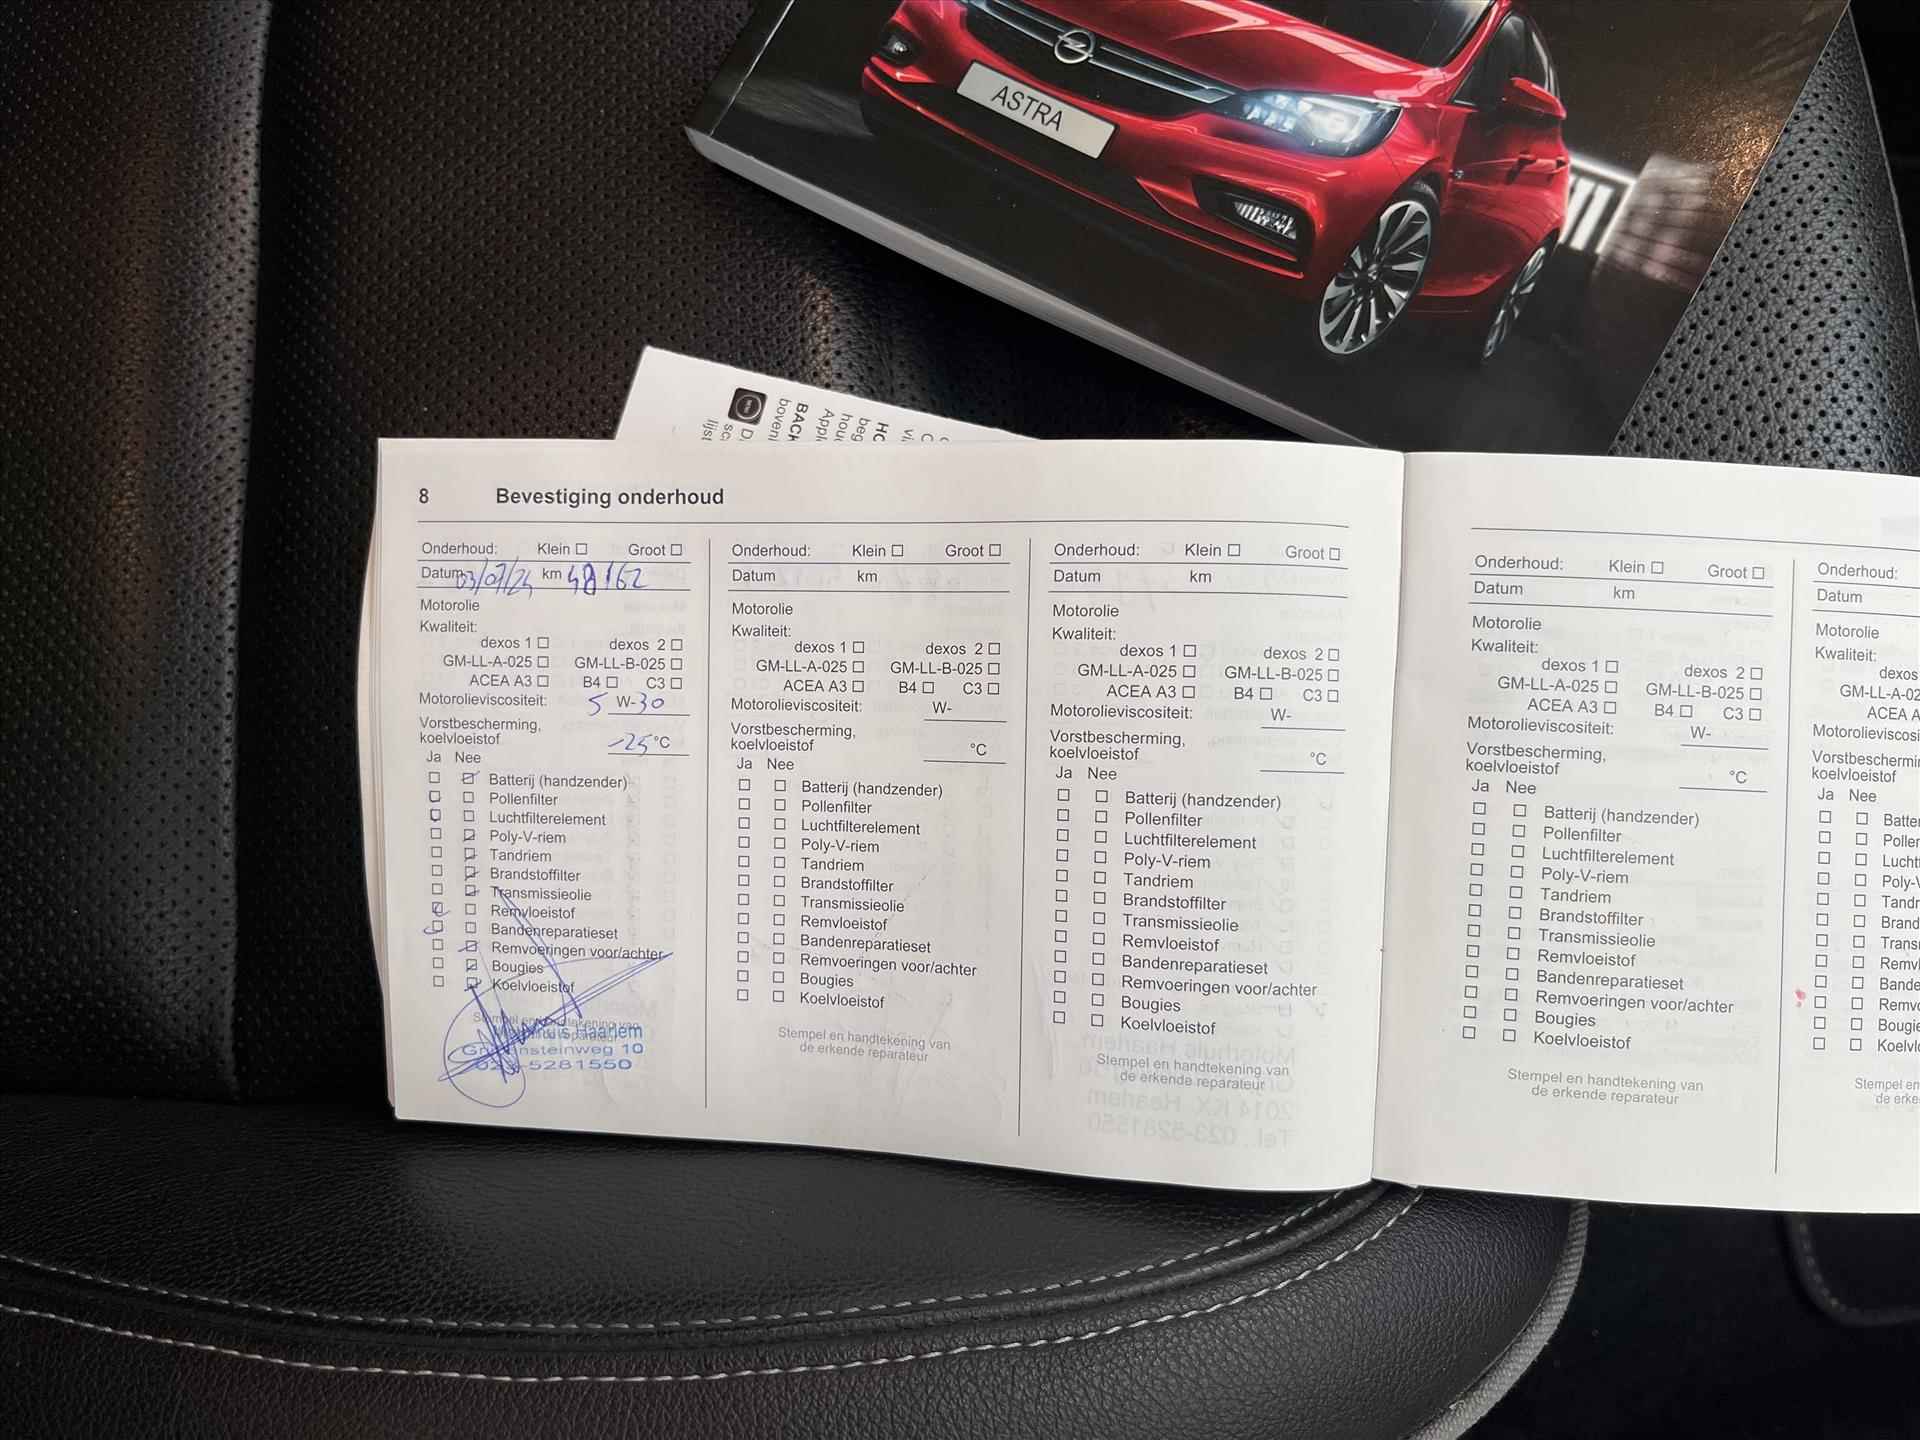 ASTRA
8 Bevestiging onderhoud
Onderhoud: Klein ☐ Groot ☐
Datum 03/07/24 km 48162
Motorolie
Kwaliteit:
dexos 1 ☐ dexos 2 ☐
GM-LL-A-025 ☐ GM-LL-B-025 ☐
ACEA A3 ☐ B4 ☐ C3 ☐
Motorolieviscositeit: 5 W-30
Vorstbescherming,
koelvloeistof -25 °C
Ja Nee
Batterij (handzender)
Pollenfilter
Luchtfilterelement
Poly-V-riem
Tandriem
Brandstoffilter
Transmissieolie
Remvloeistof
Bandenreparatieset
Remvoeringen voor/achter
Bougies
Koelvloeistof
Stempel en handtekening van
Haarlem
10
5281550
Onderhoud: Klein ☐ Groot ☐
Datum km
Motorolie
Kwaliteit:
dexos 1 ☐ dexos 2 ☐
GM-LL-A-025 ☐ GM-LL-B-025 ☐
ACEA A3 ☐ B4 ☐ C3 ☐
Motorolieviscositeit: W-
Vorstbescherming,
koelvloeistof °C
Ja Nee
Batterij (handzender)
Pollenfilter
Luchtfilterelement
Poly-V-riem
Tandriem
Brandstoffilter
Transmissieolie
Remvloeistof
Bandenreparatieset
Remvoeringen voor/achter
Bougies
Koelvloeistof
Stempel en handtekening van
de erkende reparateur
Onderhoud: Klein ☐ Groot ☐
Datum km
Motorolie
Kwaliteit:
dexos 1 ☐ dexos 2 ☐
GM-LL-A-025 ☐ GM-LL-B-025 ☐
ACEA A3 ☐ B4 ☐ C3 ☐
Motorolieviscositeit: W-
Vorstbescherming,
koelvloeistof °C
Ja Nee
Batterij (handzender)
Pollenfilter
Luchtfilterelement
Poly-V-riem
Tandriem
Brandstoffilter
Transmissieolie
Remvloeistof
Bandenreparatieset
Remvoeringen voor/achter
Bougies
Koelvloeistof
Stempel en handtekening van
de erkende reparateur
Onderhoud: Klein ☐ Groot ☐
Datum km
Motorolie
Kwaliteit:
dexos 1 ☐ dexos 2 ☐
GM-LL-A-025 ☐ GM-LL-B-025 ☐
ACEA A3 ☐ B4 ☐ C3 ☐
Motorolieviscositeit: W-
Vorstbescherming,
koelvloeistof °C
Ja Nee
Batterij (handzender)
Pollenfilter
Luchtfilterelement
Poly-V-riem
Tandriem
Brandstoffilter
Transmissieolie
Remvloeistof
Bandenreparatieset
Remvoeringen voor/achter
Bougies
Koelvloeistof
Stempel en handtekening van
de erkende reparateur
Onderhoud:
Datum
Motorolie
Kwaliteit:
dexos
GM-LL-A-02
ACEA A
Motorolieviscosi
Vorstbeschermin
koelvloeistof
Ja Nee
Batte
Polle
Lucht
Poly-V
Tandr
Brand
Transm
Remvl
Bande
Remvo
Bougie
Koelvl
Stempel en
de erke